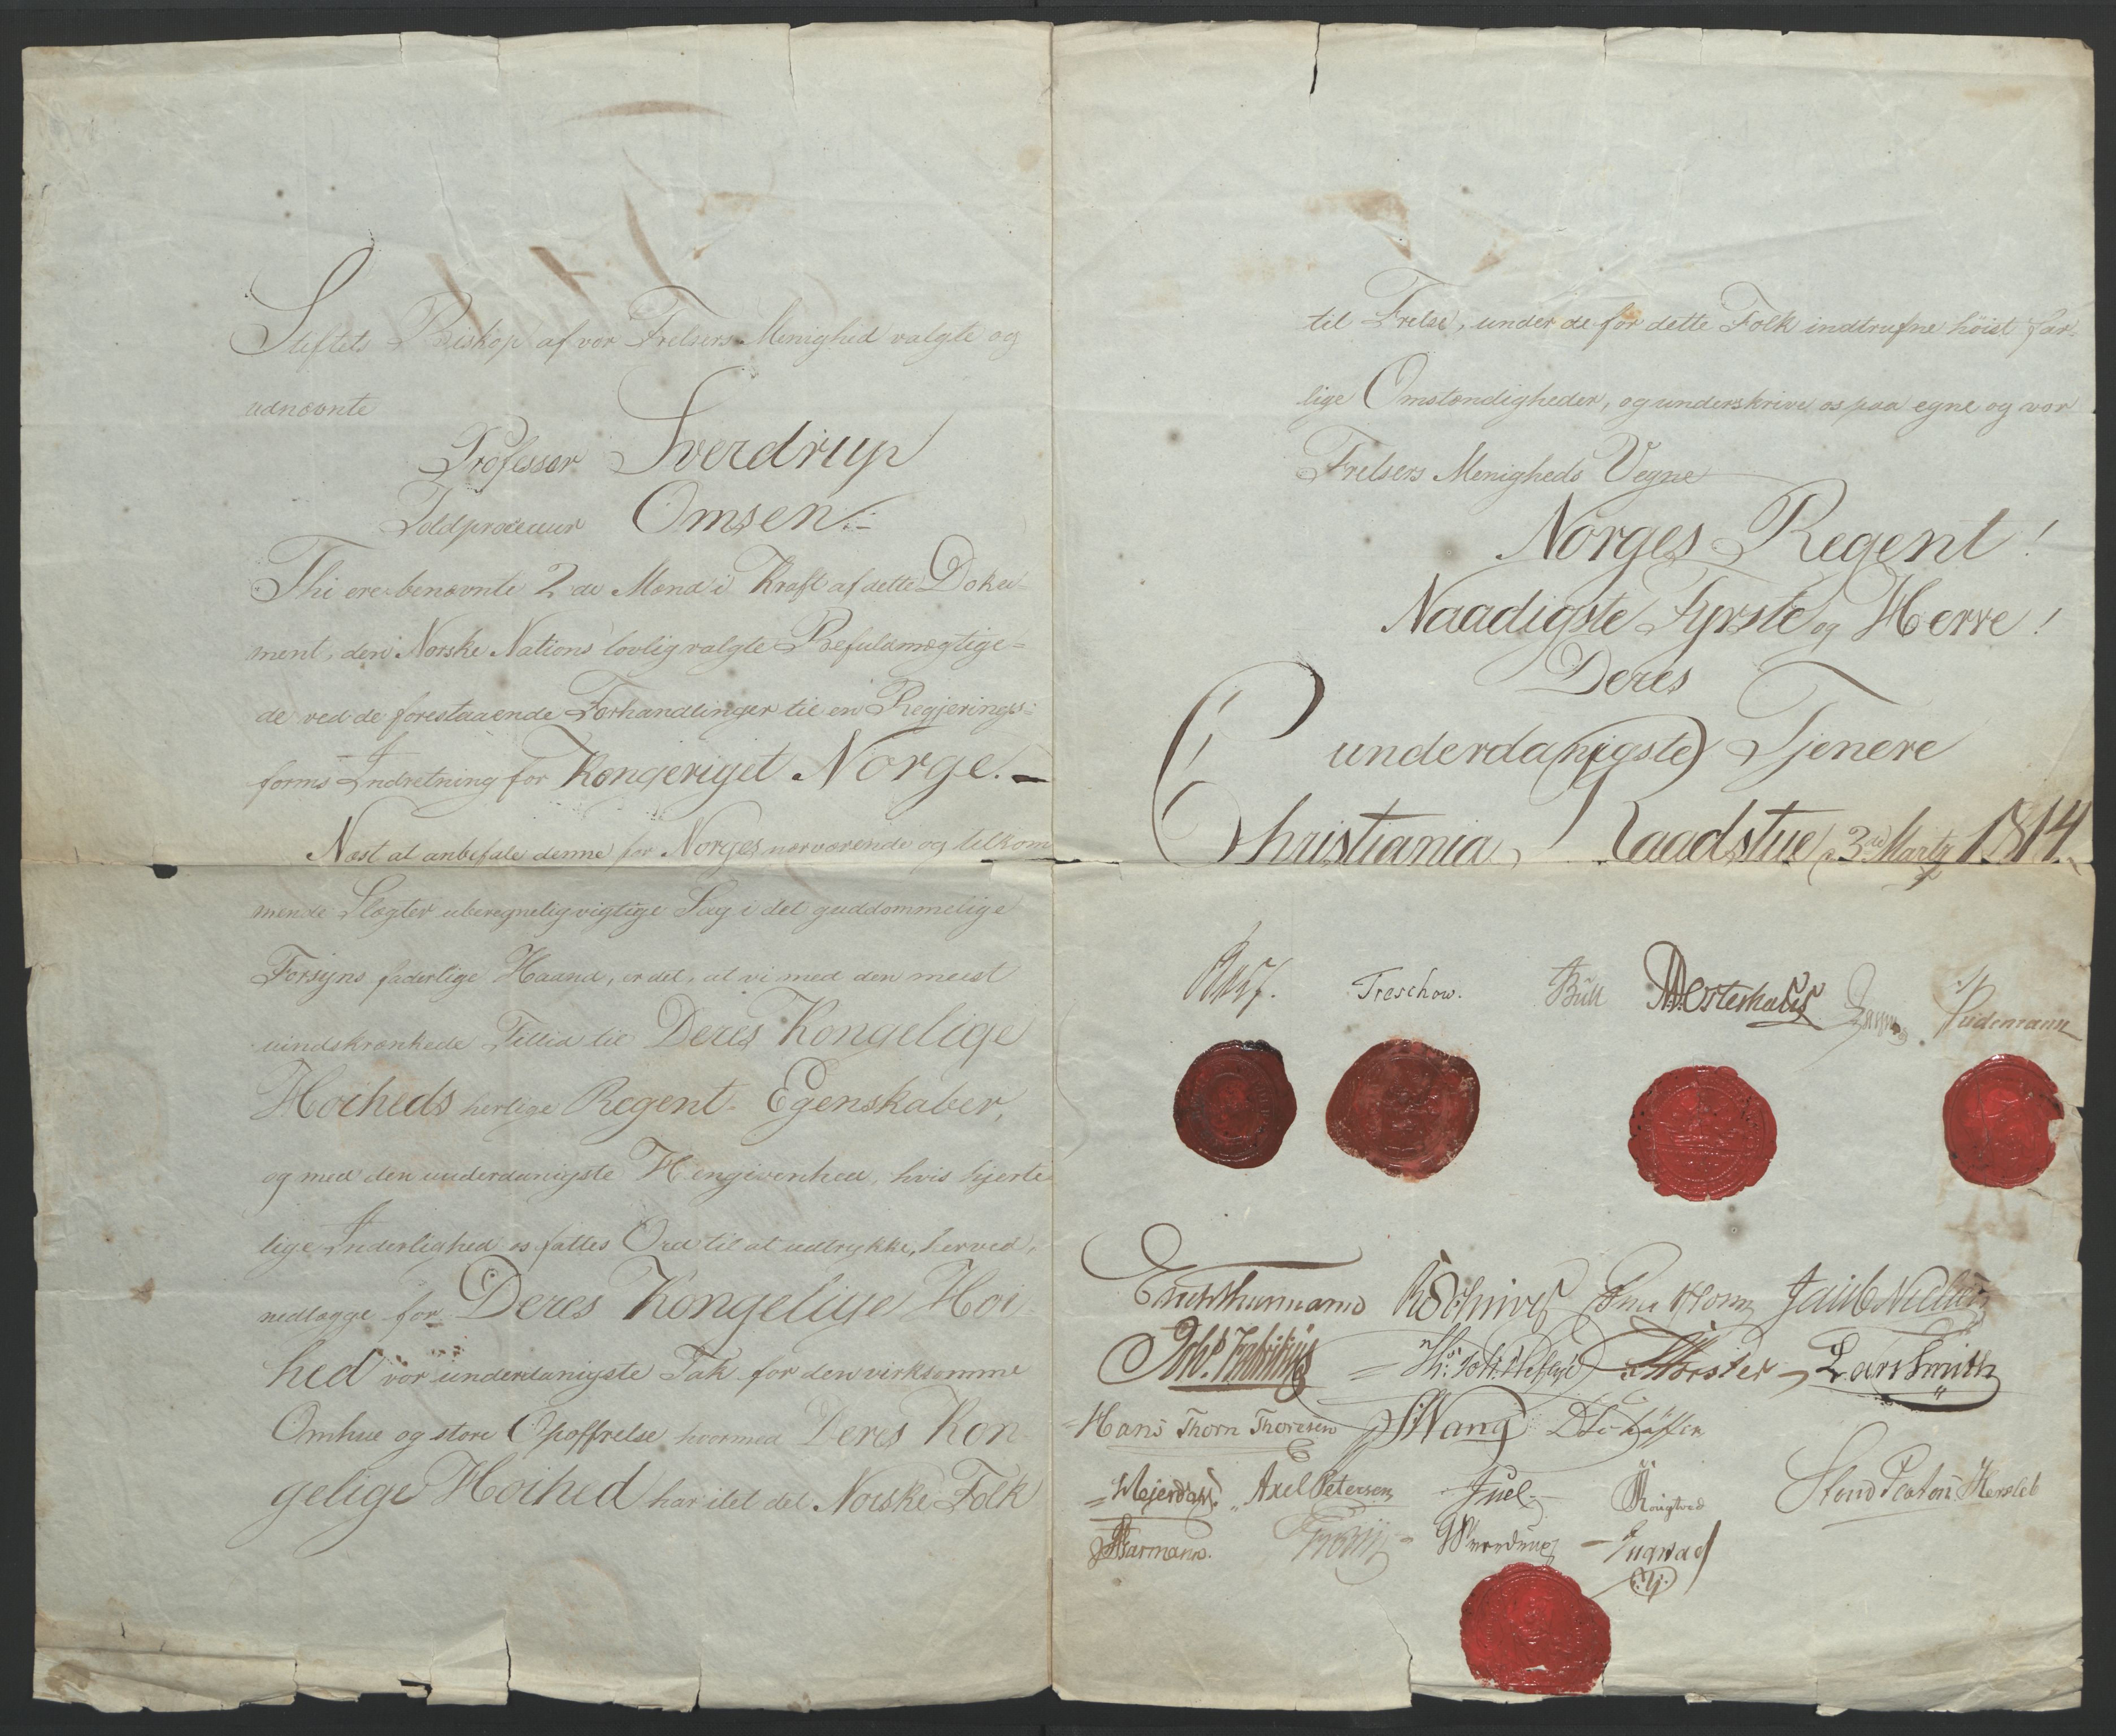 Stiftets Biskop af vor Frelsers Menighed valgte og
udnævnte
Professor Sverdrup
Toldprocurur Omsen.
Thi ere benævnte 2de Mænd i Kraft af dette Doku-
ment, den Norske Nations lovlig valgte Befuldmægtige-
de ved de forestaaende Forhandlinger til en Regjerings-
forms Indretning for Kongeriget Norge.
Næst at anbefale denne for Norges nærværende og tilkom
mende Slægter uberegnelig vigtige Sag i det guddommelige
Forsyns faderlige Haand, er det, at vi med den meest
uindskrænkede Tillid til Deres Kongelige
Hoiheds herlige Regent-Egenskaber,
og med den underdanigste Hengivenhed, hvis hjerte
lige Inderlighed os fattes Ord til at udtrykke, herved,
nedlægge for Deres Kongelige Hoi-
hed vor underdanigste Tak for den virksomme
Omhue og store Opoffrelse hvormed Deres Kon
gelige Hoihed har ilet det Norske Folk
til Frelse, under de for dette Folk indtrufne höist far-
lige Omstændigheder, og underskrive os paa egne og vor
Frelsers Menigheds Vegne
Norges Regent!
Naadigste Fyrste og Herre!
Deres
underdanigste Tjenere
Christiania, Raadstue, 3de Marty 1814.
Treschow. Bull
Jacob Nielsen
Lars Smith
Hans Thorn Thoresen Wang
Mejerdahl. Axel Petersen Juel